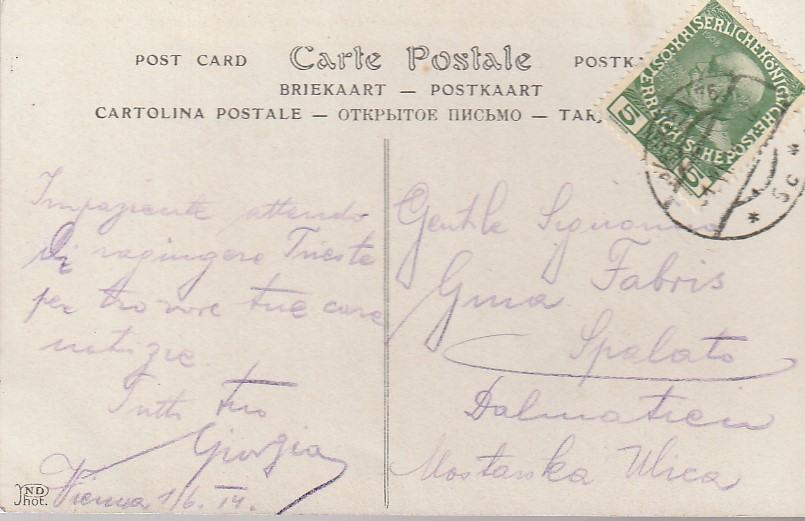 POST CARD Carte Postale POSTKA
BRIEKAART — POSTKAART
CARTOLINA POSTALE — ОТКРЫТОЕ ПИСЬМО — TAR
5 KAISERLICHEKÖNIGLICHE ÖSTERREICHISCHE POST 5
1908
5c
Impaziente attendo
di ragiungere Trieste
per trovare tue care
notizie.
Tutto tuo
Giorgia
Vienna 1/6. 14.
ND
Phot.
Gentile Signorina
Gina Fabris
Spalato
Dalmatien
Mostarska Ulica